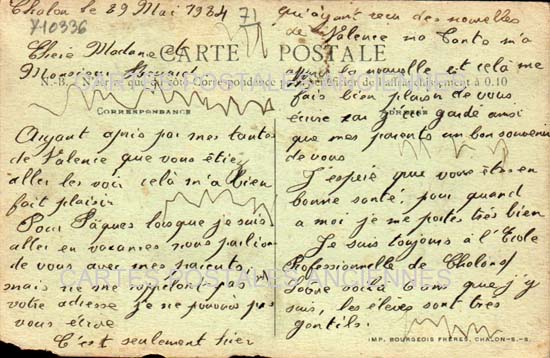 Chalon le 29 Mai 1934
71
X10336
Chère Madame et
Monsieur
CARTE POSTALE
N.-B. — N'écrire que du côté Correspondance pour bénéficier de l'affranchissement à 0.10
CORRESPONDANCE
ADRESSE
Ayant apris par mes tantes
de Valence que vous étiez
aller les voir celà m'a bien
fait plaisir
Pour Pâques lorsque je suis
aller en vacances nous parlions
de vous avec mes parents,
mais ne me rappelant pas
votre adresse je ne pouvais pas
vous écrire
C'est seulement hier
qu'ayant reçu des nouvelles
de Valence ma Tante m'a
la nouvelle et celà me
fais bien plaisir de vous
écrire car j'ai gardé ainsi
que mes parents un bon souvenir
de vous
J'espère que vous êtes en
bonne santé, pour quand
a moi je me portes très bien
Je suis toujours à l'École
Professionnelle de Chalon s/
Saône voilà 2 ans que j'y
suis, les élèves sont très
gentils.
CARTES POSTALES ANCIENNES
CARTES POSTALES ANCIENNES
IMP. BOURGEOIS FRÈRES, CHALON-S.-S.